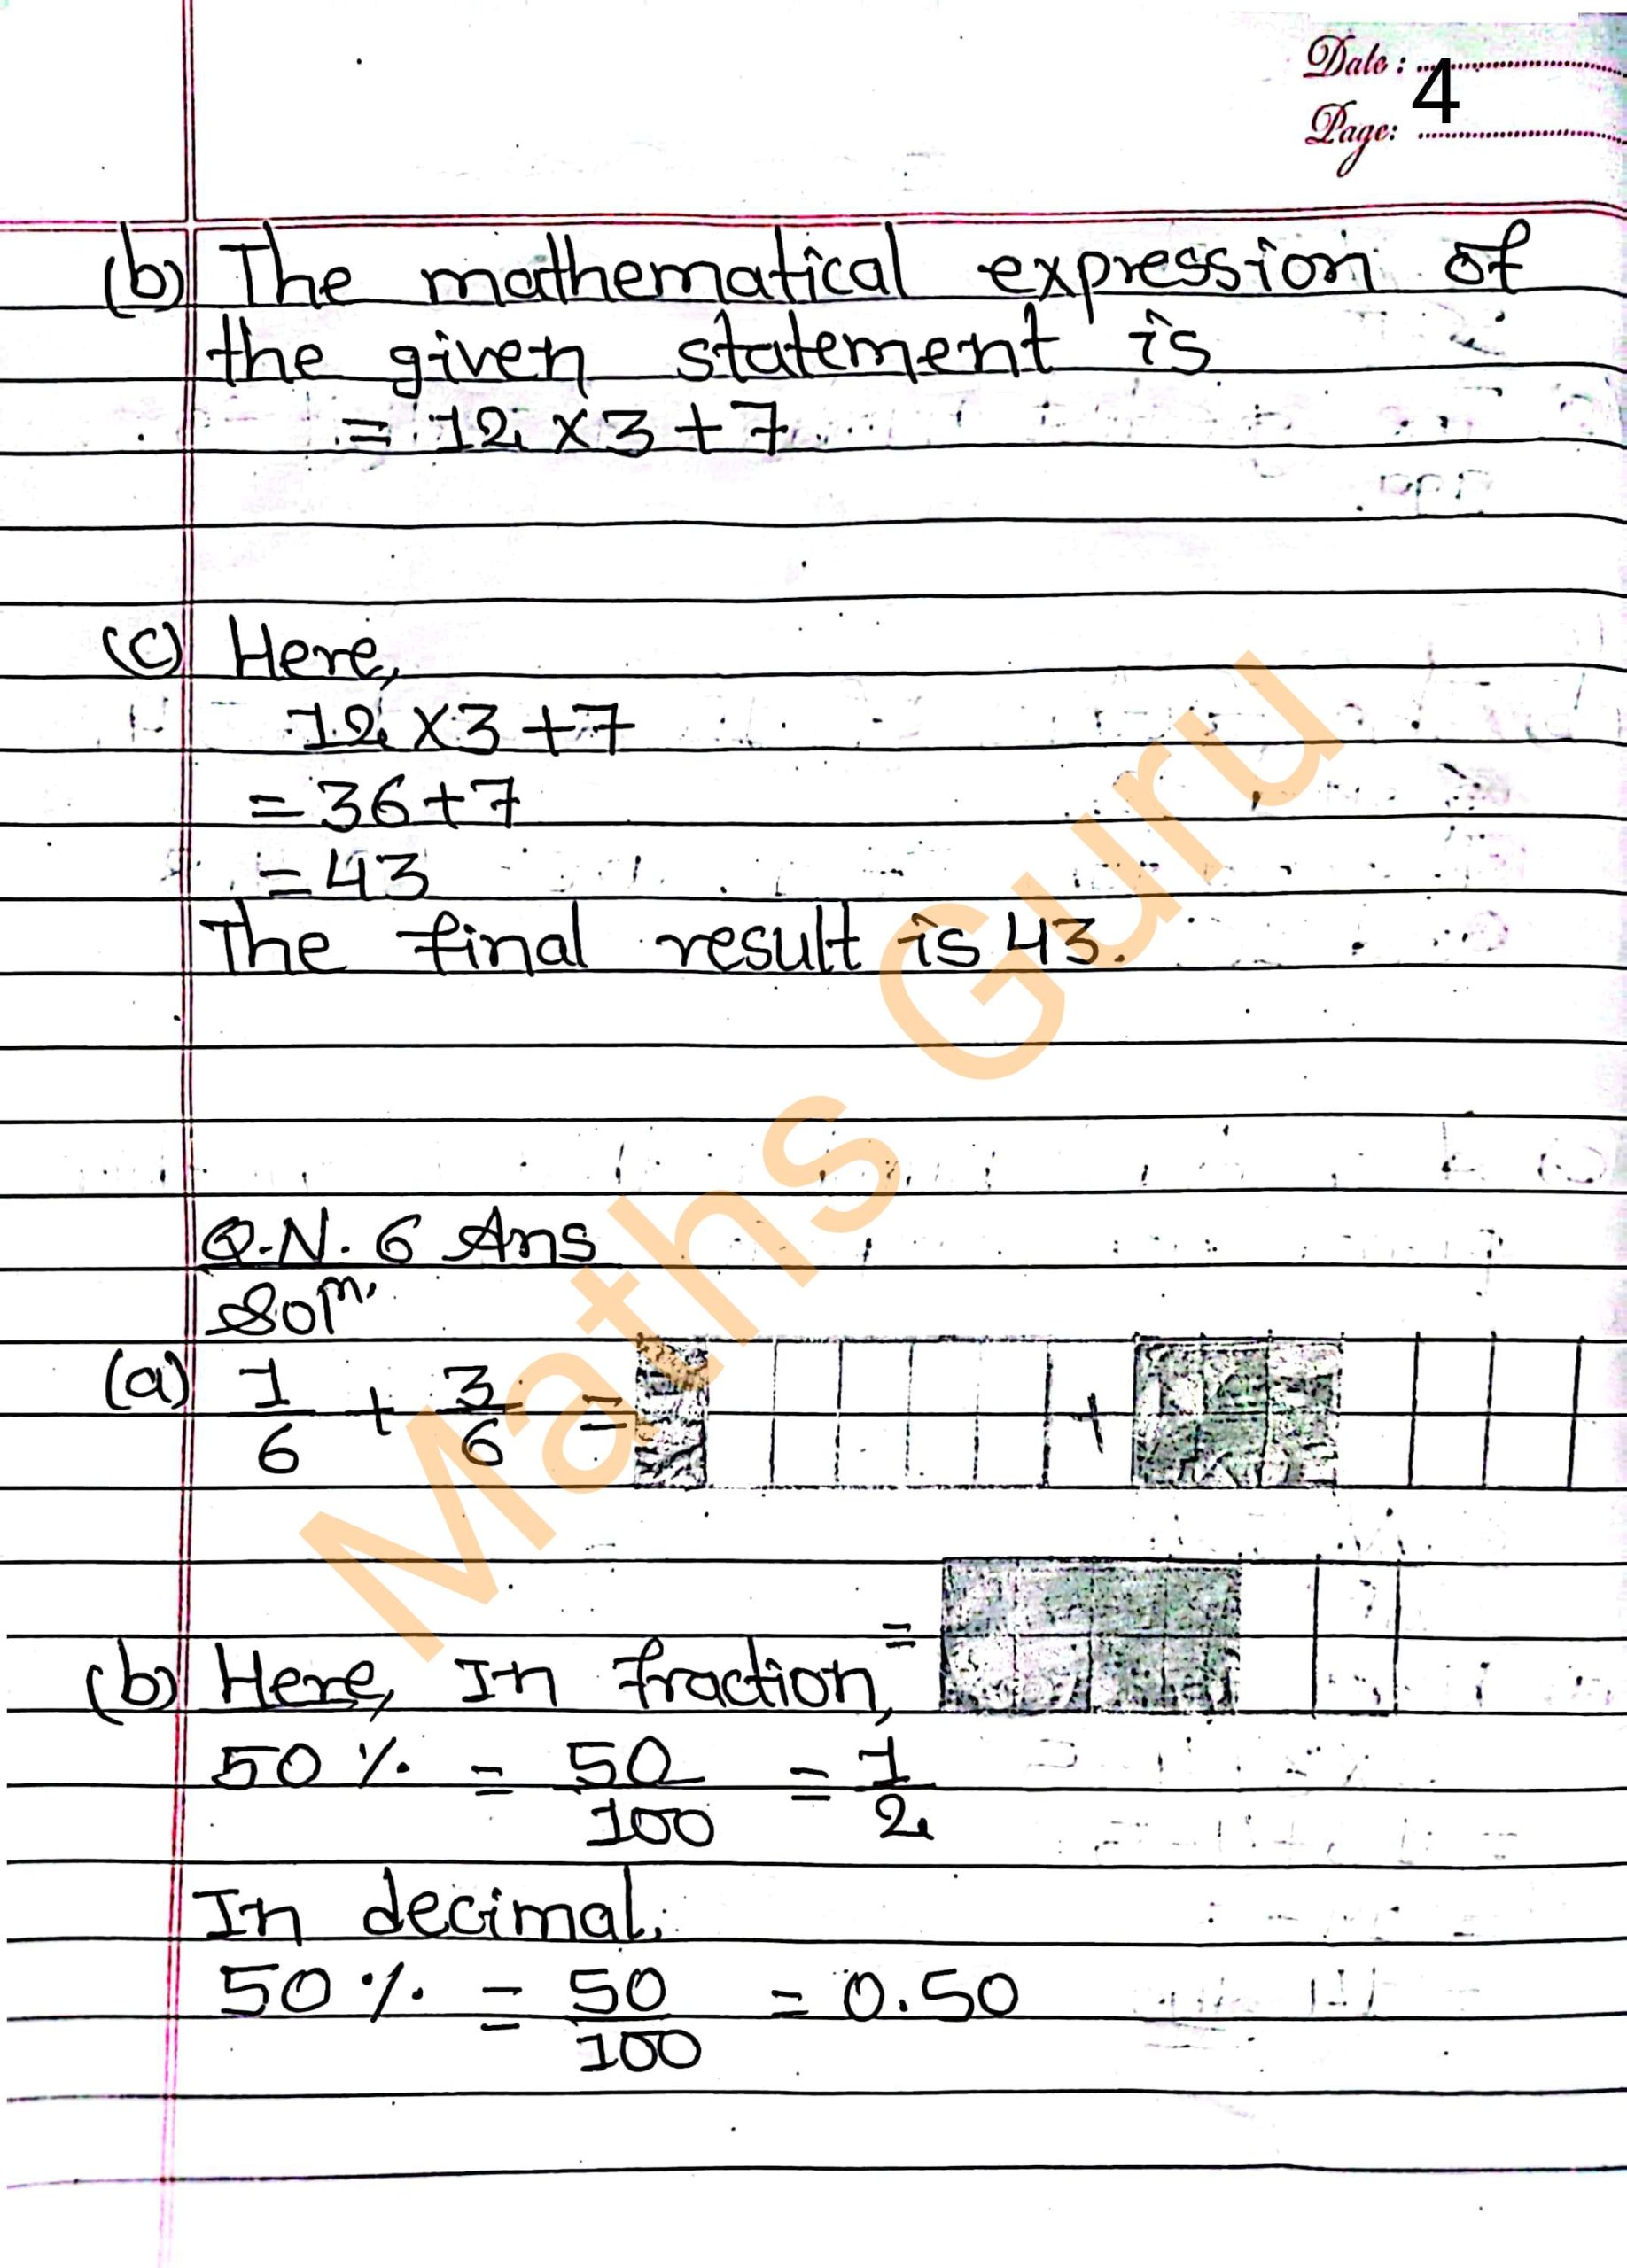 Date :
4
Page:
(b) The mathematical expression of
the given statement is
= 12 × 3 + 7
(c) Here,
12 × 3 + 7
= 36 + 7
= 43
The final result is 43.
Maths Guru
Q.N. 6 Ans
Solⁿ.
(a) 1/6 + 3/6 = +
=
(b) Here, In fraction,
50 % = 50/100 = 1/2
In decimal,
50 % = 50/100 = 0.50